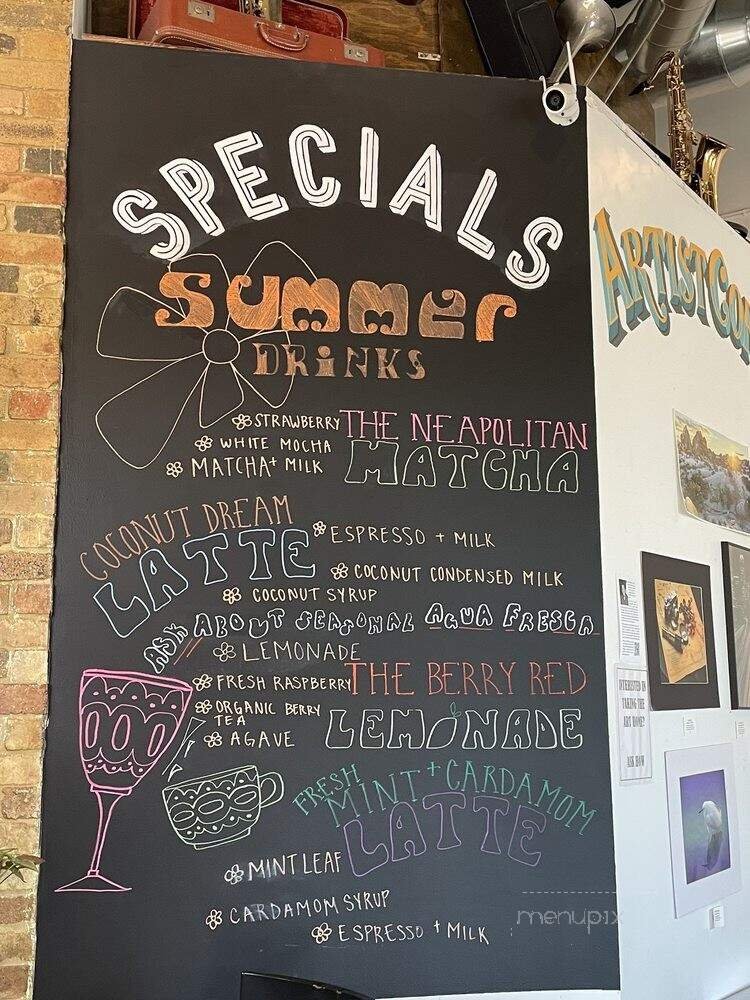 SPECIALS
SUMMER
DRINKS
STRAWBERRY
WHITE MOCHA
MATCHA + MILK
THE NEAPOLITAN
MATCHA
COCONUT DREAM
LATTE
ESPRESSO + MILK
COCONUT CONDENSED MILK
COCONUT SYRUP
ASK ABOUT SEASONAL AGUA FRESCA
LEMONADE
FRESH RASPBERRY
ORGANIC BERRY
TEA
AGAVE
THE BERRY RED
LEMONADE
FRESH
MINT + CARDAMOM
LATTE
MINT LEAF
CARDAMOM SYRUP
ESPRESSO + MILK
menupix
ARTIST CO
INTERESTED IN
TAKING THE
ART HOME?
ASK HOW